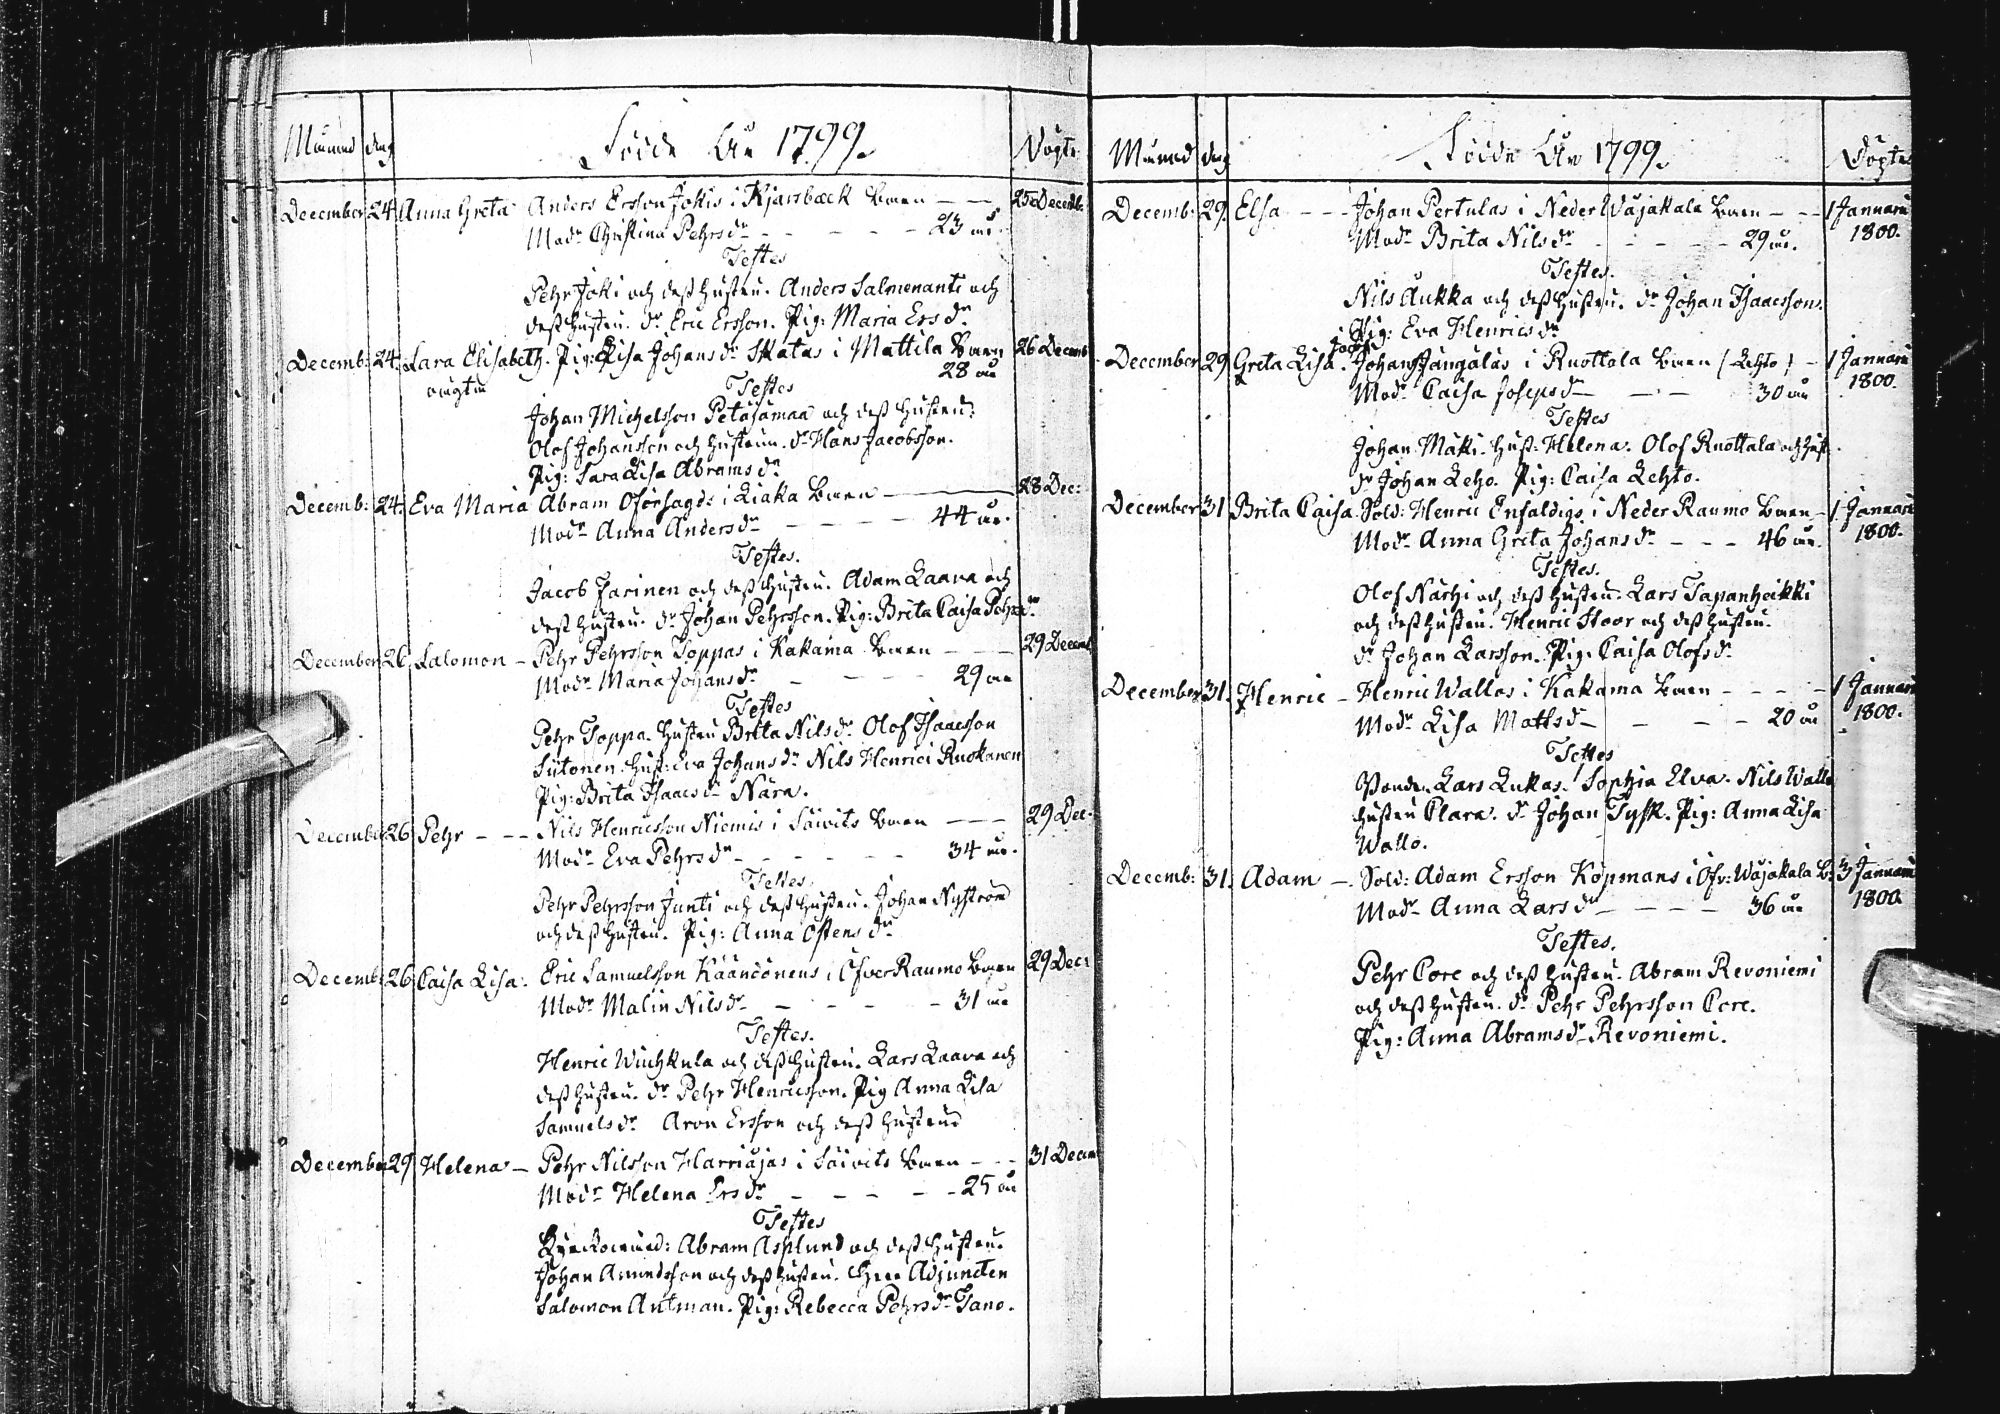 Månad dag Födde År 1799. Döpte
December 24. Anna Greta Anders Ersson Jokis i Kjarsback Barn 25 Decemb.
Modr Christina Pehrs dr 23 år.
Testes
Pehr Joki och dess hustru. Anders Salmenants och
dess hustru. dr Eric Ersson. Pig: Maria Ers dr
Decemb: 24. Sara Elisabeth. Pig: Lisa Johans dr Skatas i Mattila Barn 26 Decemb
oägta 28 år
Testes
Johan Michelsson Petäjämaa och dess hustru.
Olof Johansson och hustrun. dr Hans Jacobsson.
Pig: Sara Lisa Abrams dr
Decemb: 24. Eva Maria Abram Oförsagds i Liaka Barn 28 Dec:
Modr Anna Anders dr 44 år.
Testes.
Jacob Jarinen och dess hustru. Adam Laava och
dess hustru. dr Johan Pehrsson. Pig: Brita Caisa Pehrs dr
December 26. Salomon Pehr Pehrsson Toppas i Kakama Barn 29 Decemb
Modr Maria Johans dr 29 år
Testes
Pehr Toppa. hustru Brita Nils dr Olof Isaacsson
Sutonen. hust: Eva Johans dr Nils Henrici Ruokanen
Pig: Brita Isaacs dr Nära.
December 26 Pehr Nils Henricsson Niemis i Säivits Barn 29 Dec.
Modr Eva Pehrs dr 34 år.
Testes.
Pehr Pehrsson Junti och dess hustru. Johan Nyström
och dess hustru. Pig: Anna Östens dr
Decemb 26 Caisa Lisa. Eric Samuelsson Käänäönens i Öfver Raumo Barn 29 Dec:
Modr Malin Nils dr 31 år
Testes.
Henric Wuchkula och dess hustru. Lars Laava och
dess hustru. dr Pehr Henricsson. Pig Anna Lisa
Samuels dr Aron Ersson och dess hustrus
December 29 Helena Pehr Nilsson Harriajas i Säivits Barn 31 Decem
Modr Helena Ers dr 25 år
Testes
Abram Asplund och dess hustru.
Johan Amundsson och dess hustru. Herr Adjuncten
Salomon Antman. Pig: Rebecca Pehrs dr Tano.
Månad dag Födde År 1799. Döpte
Decemb: 29. Elsa Johan Pertulas i Neder Wäjakala Barn 1 Januarii
Modr Brita Nils dr 29 år. 1800.
Testes.
Nils Aukka och dess hustru. dr Johan Isaacsson.
Pig: Eva Henrics dr
December 29 Greta Lisa. Johans Jängäläs i Ruottala Barn (Lehto) 1 Januarii
Modr Caisa Joseps dr 30 år 1800.
Testes
Johan Mäki. Hust: Helena. Olof Ruottala och hust.
dr Johan Leho. Pig: Caisa Lehto.
December 31 Brita Caisa Sold: Henric Enfaldigs i Neder Raumo Barn 1 Januarii
Modr Anna Greta Johans dr 46 år. 1800.
Testes.
Olof Närhi och dess hustru. Lars Tapanheikki
och dess hustru. Henric Stoor och dess hustru.
dr Johan Larsson. Pig: Caisa Olofs dr
December 31. Henric Henric Wallos i Kakama Barn 1 Januarii
Modr Lisa Matts dr 20 år 1800.
Testes
Bonden Lars Lukas. Sophia Elva. Nils Wallo
hustru Clara. dr Johan Tysk. Pig: Anna Lisa
Wallo.
Decemb: 31. Adam Sold: Adam Ersson Köpmans i Öfv: Wäjakala B. 3 Januarii
Modr Anna Lars dr 36 år 1800.
Testes.
Pehr Core och dess hustru. Abram Revoniemi
och dess hustru. dr Pehr Pehrsson Core.
Pig: Anna Abrams dr Revoniemi.